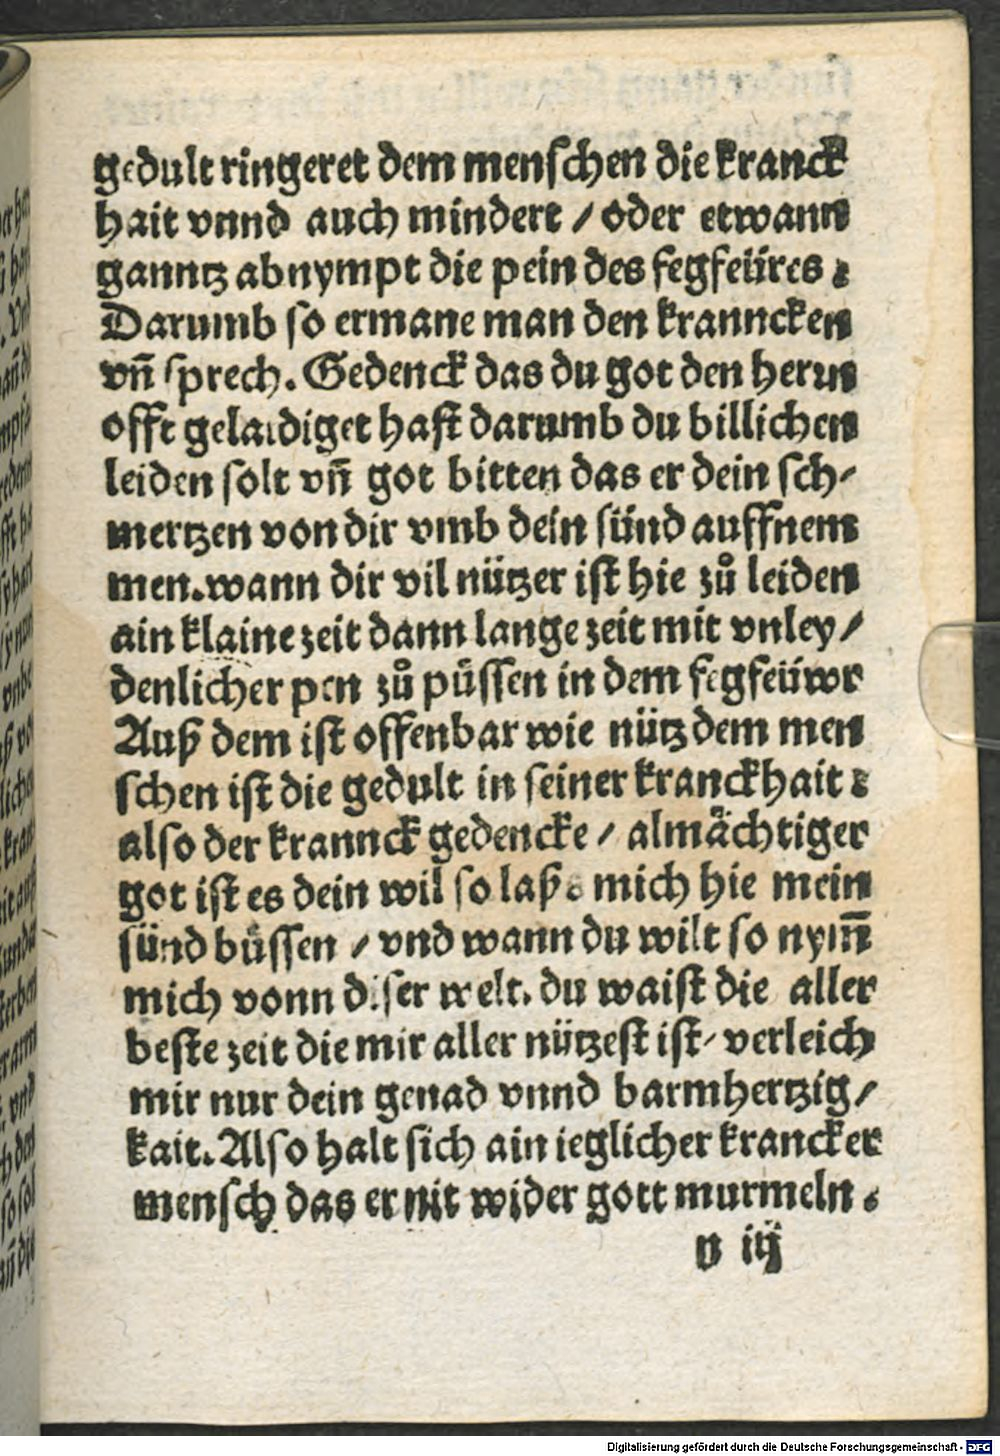 gedult ringeret dem menschen die kranck
hait vnnd auch mindert / oder etwann
ganntz abnympt die pein des fegfeüres :
Darumb so ermane man den krancken
vñ sprech. Gedenck das du got den herrn
offt gelaidiget hast darumb du billichen
leiden solt vñ got bitten das er dein sch/
mertzen von dir vmb dein sünd auffnem
men. wann dir vil nützer ist hie zů leiden
ain klaine zeit dann lange zeit mit vnley/
denlicher pen zů püssen in dem fegfeüwr
Auß dem ist offenbar wie nütz dem men
schen ist die gedult in seiner kranckhait :
also der krannck gedencke / almächtiger
got ist es dein wil so laß mich hie mein
sünd büssen / vnd wann du wilt so nym̄
mich vonn diser welt. du waist die aller
beste zeit die mir aller nützest ist / verleich
mir nur dein genad vnnd barmhertzig/
kait. Also halt sich ain ieglicher krancker
mensch das er nit wider gott murmeln.
v iij
Digitalisierung gefördert durch die Deutsche Forschungsgemeinschaft - DFG